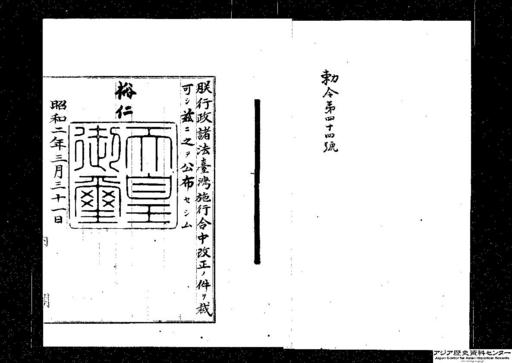 勅令第四十四號
朕行政諸法臺灣施行令中改正ノ件ヲ裁
可シ茲ニ之ヲ公布セシム
裕仁
天皇
御璽
昭和二年三月三十一日
アジア歴史資料センター
Japan Center for Asian Historical Records